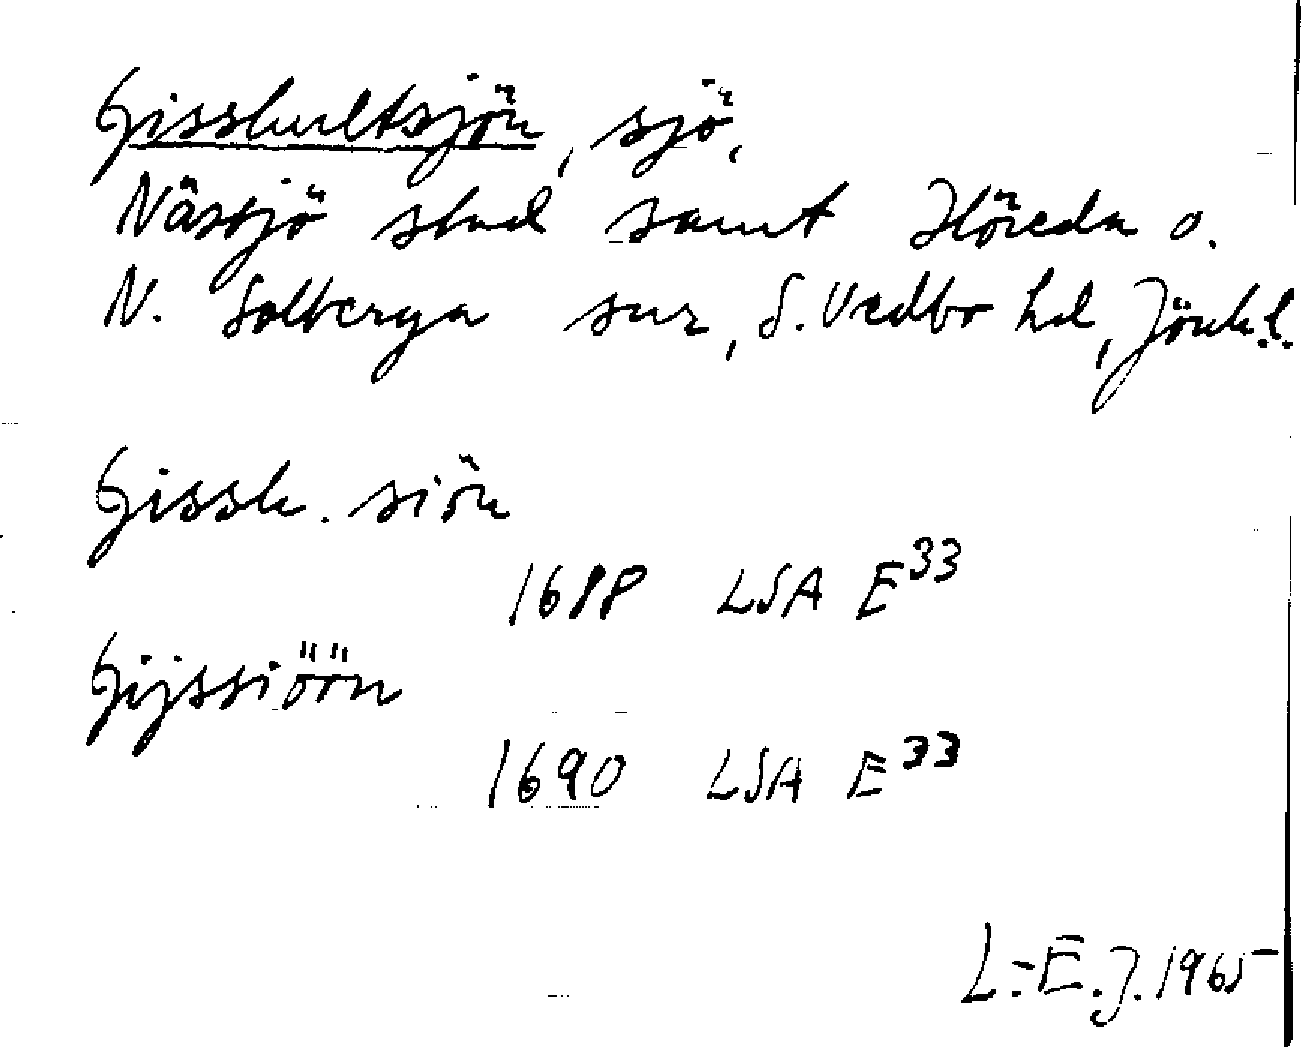 Gisshultsjön, sjö,
Nässjö stad samt Höreda o.
N. Solberga snr, S. Vedbo hd, Jönk. l.
Gissh. siön
1688 LSA E33
Gijssiöön
1690 LSA E33
L.-E. J. 1965